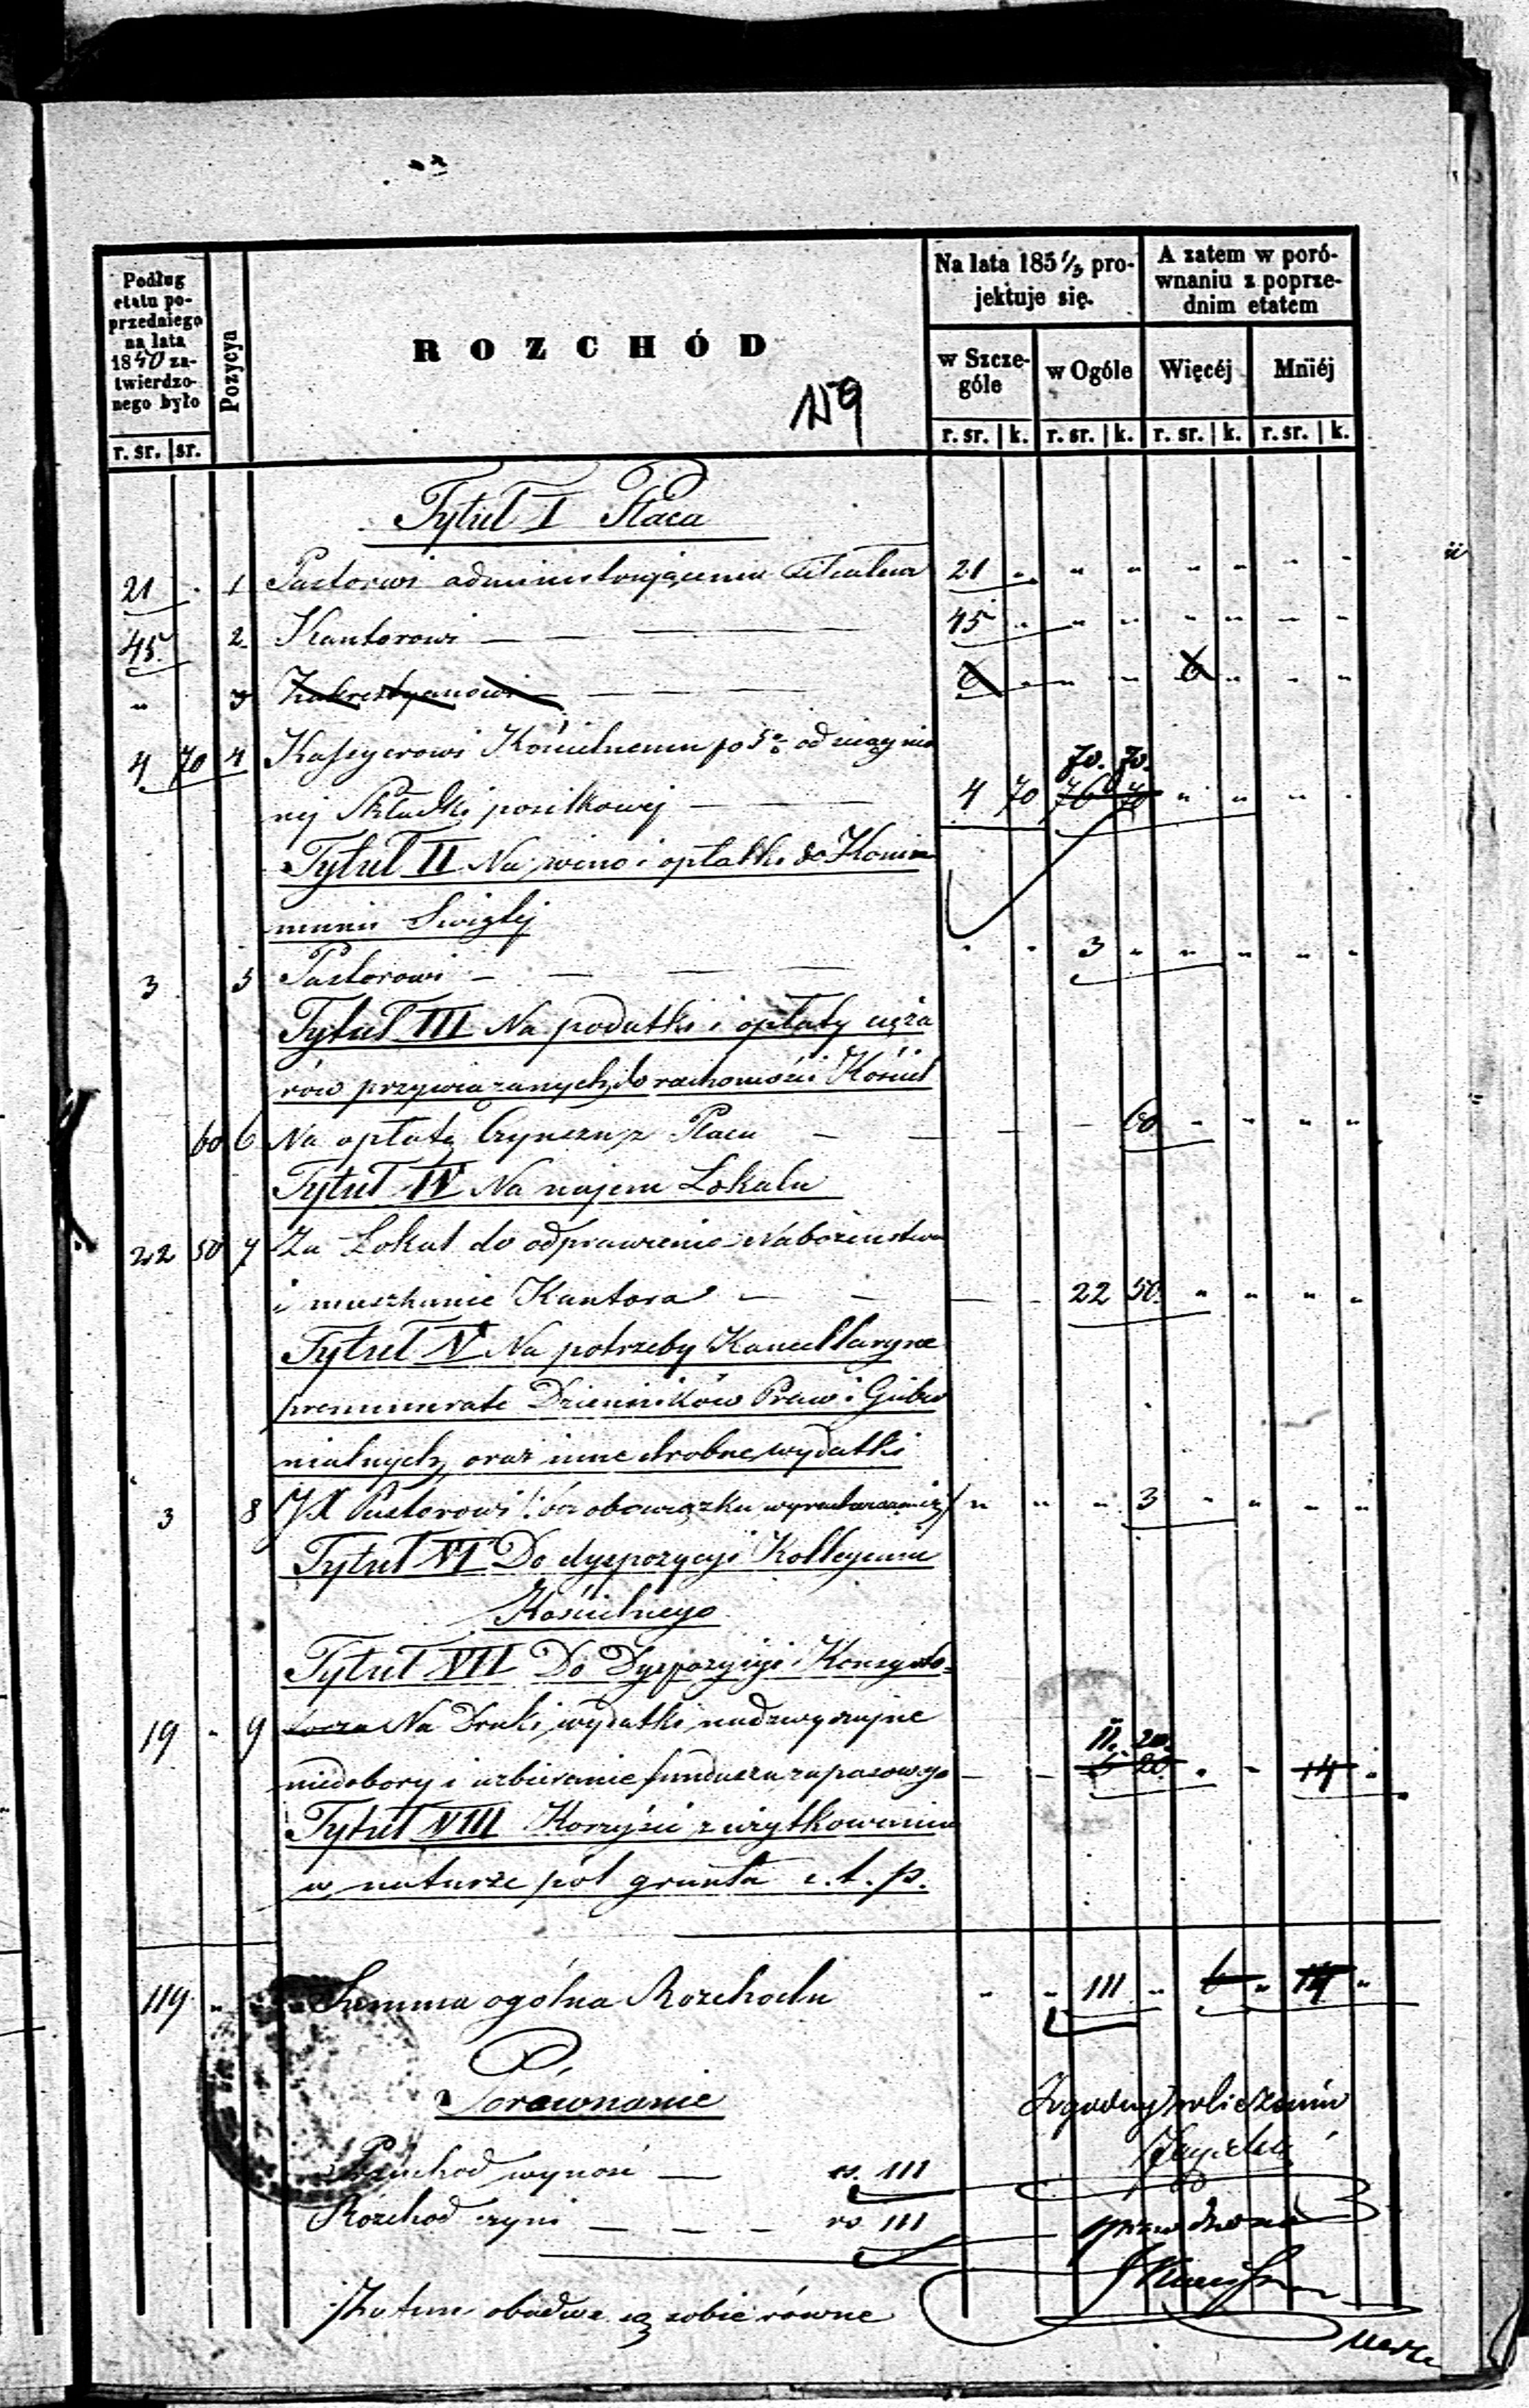 Podług etatu poprzedniego na lata 1850 zatwierdzonego było
r. sr. | sr.
Pozycya
ROZCHÓD
159
Na lata 185 1/3 projektuje się.
w Szczególe
w Ogóle
r. sr. | k. r. sr. | k.
A zatem w porównaniu z poprzednim etatem
Więcéj
Mniéj
r. sr. | k. r. sr. | k.
Tytuł I Płaca
21 " 1 Pastorowi administrującemu filiałem 21 " " " " " " "
45 2 Kantorowi — — — 45 " " " " " " "
" 3 Zakrestyanowi — — — 6 " " " 6 " " "
4 70 4 Kassyerowi Kościelnemu po 5% od
70. 70.
nej Składki posiłkowej — — — 4 70 76 70 " " " "
Tytuł II Na wino i opłatki do Kom
munii Swiętej
3 5 Pastorowi — — — " " 3 " " " " "
Tytuł III Na podatki i opłaty cięża
rów przywiązanych do ruchomości Kościel
60 6 Na opłatę Czynszu z Placu — — — — 60 " " " "
Tytuł IV Na najem Lokalu
22 50 7 Za Lokal do odprawienia Nabożeństwa
i mieszkanie Kantora — — — — 22 50 " " " "
Tytuł V Na potrzeby Kancellaryne
prenumerate Dzienników Praw i Guber
nialnych, oraz inne drobne wydatki
3 8 JX Pastorowi /: bez obowiązku :/ " " " 3 " " " "
Tytuł VI Do dyspozycyi Kollegium
Kościelnego
Tytuł VII Do Dyspozycyi Konsysto-
19 " 9 rza Na Druki, wydatki nadzwyczajne
11. 20.
niedobory i uzbieranie funduszu zapasowego — — 5 20 " " 14 "
Tytuł VIII Korzyści z użytkowania
w naturze pól gruntu i. t. p.
119 " Summa ogólna Rozchodu " " 111 " 6 " 14 "
Porównanie
Przychod wynosi — rs. 111
Rozchod czyni — — — rs. 111
Zatem obadwa są sobie równe